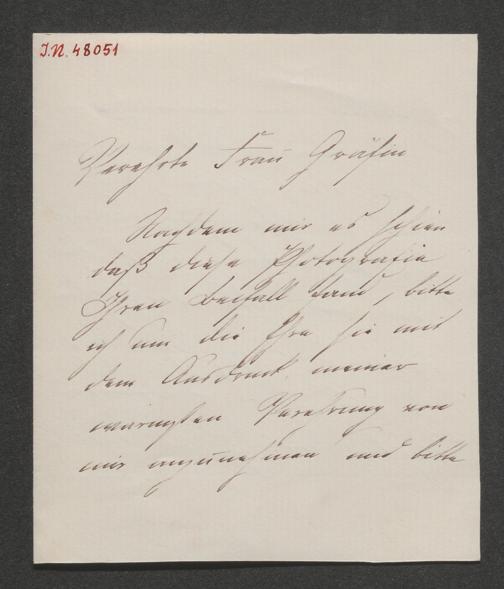 I.N. 48051
Verehrte Frau Gräfin
Nachdem mir es schien
daß diese Photografie
Ihren Beifall fand, bitte
ich um die Ehre sie mit
dem Ausdruck meiner
wärmsten Verehrung von
mir anzunehmen und bitte